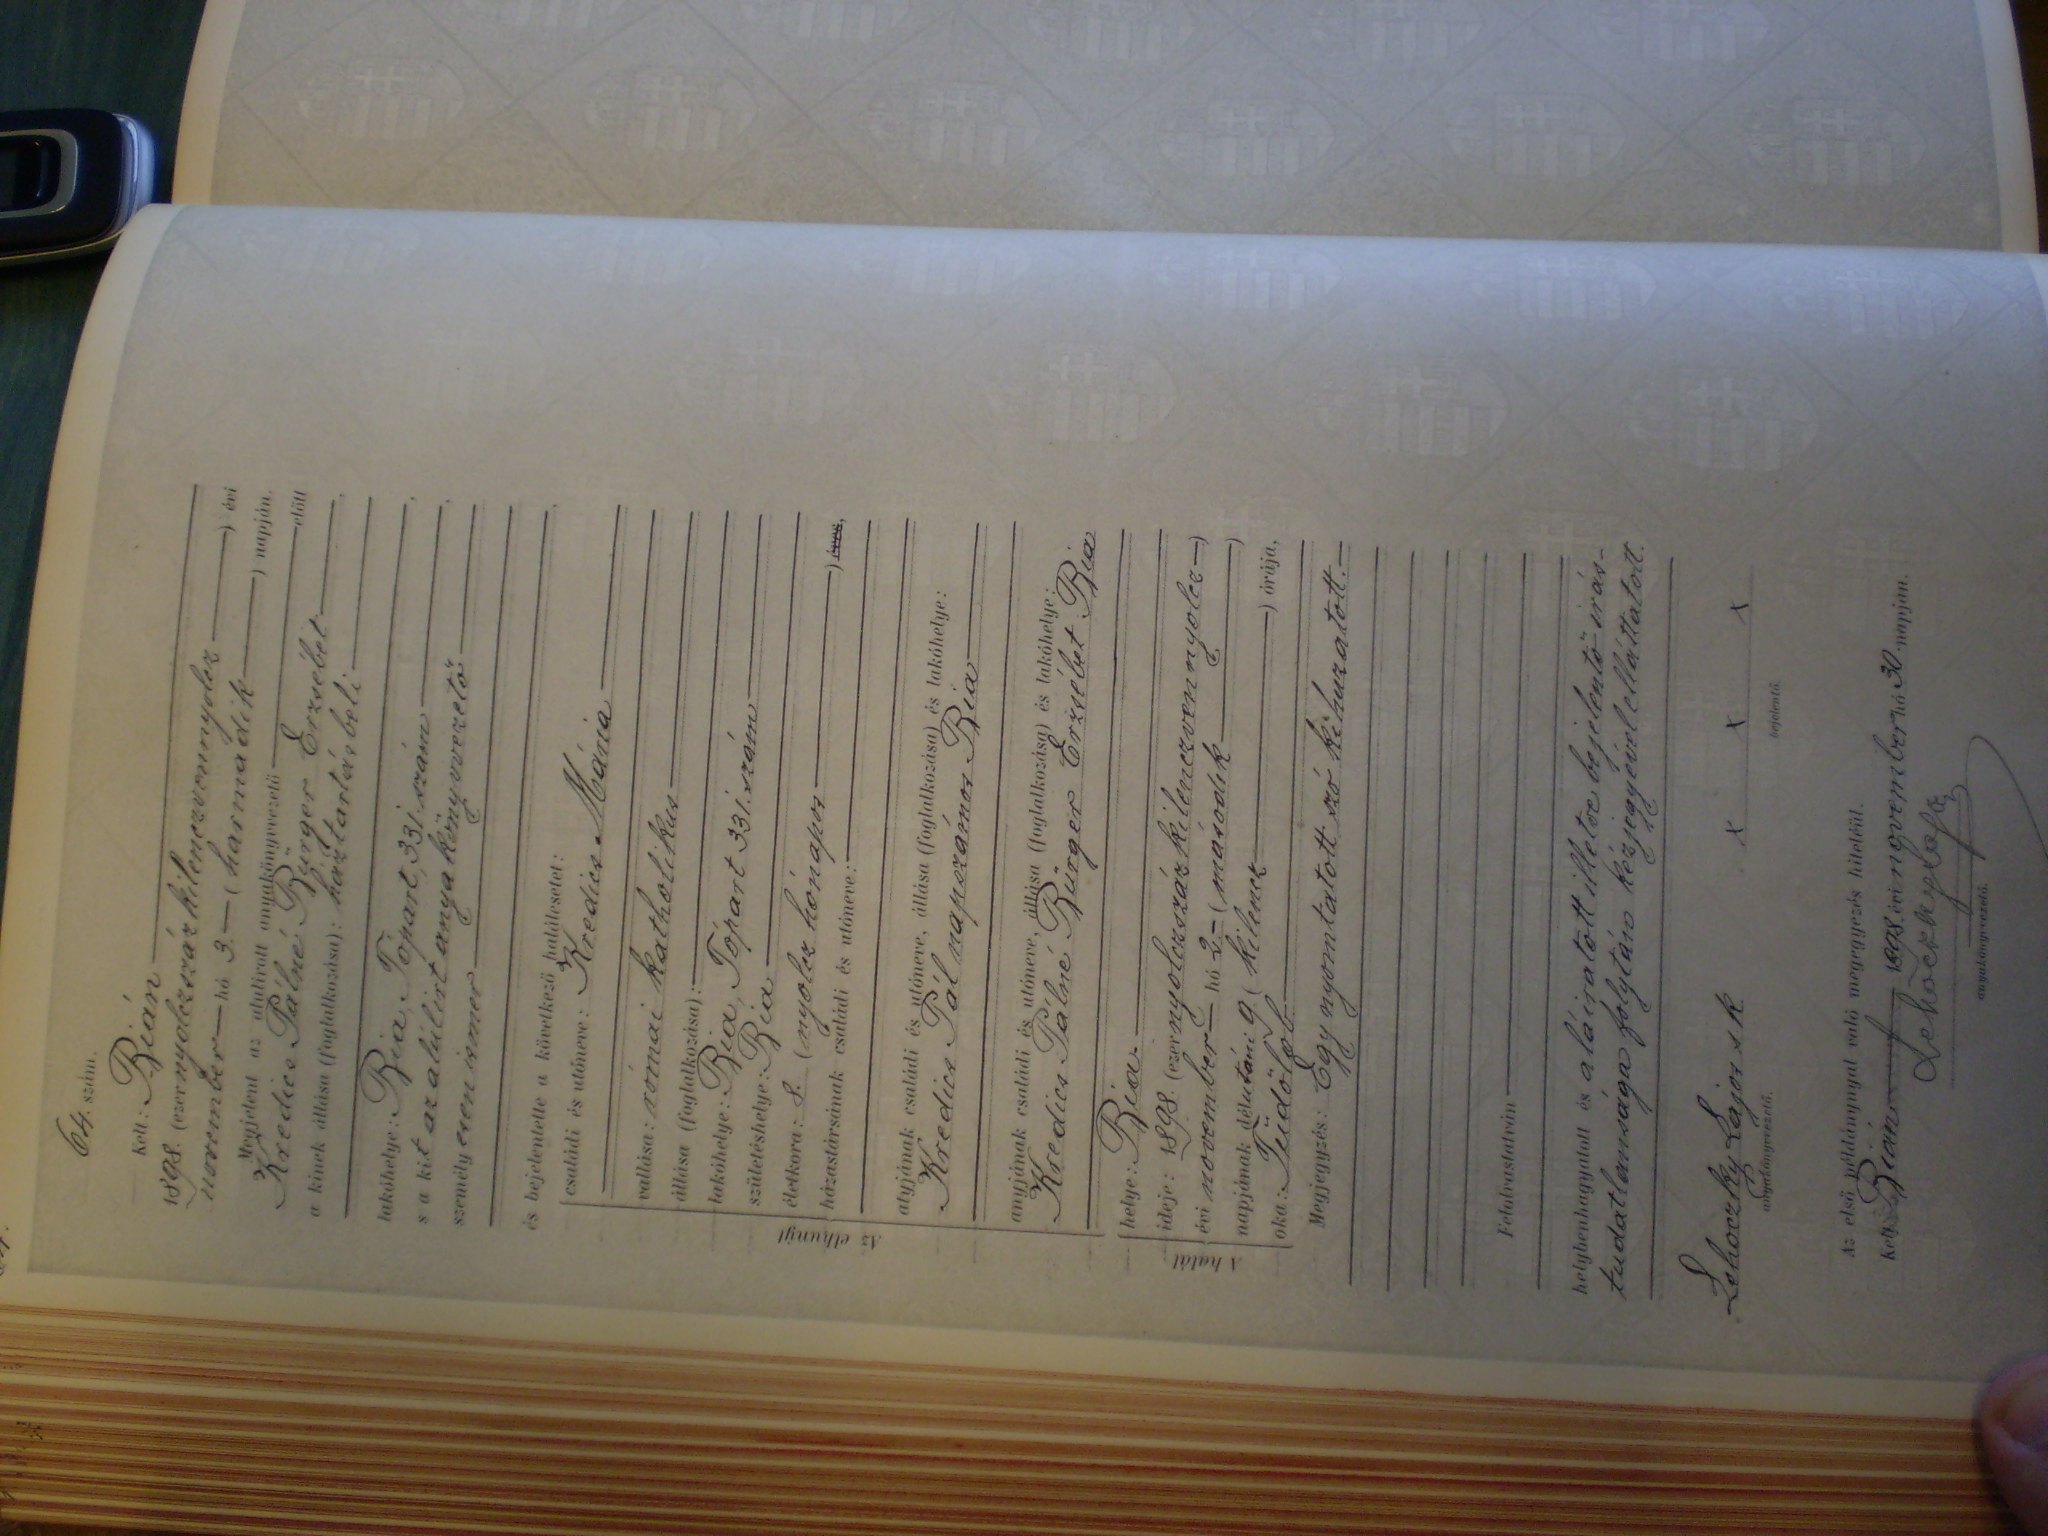 64. szám.
Kelt: Bián
1898. (ezernyolczszázkilenczvennyolcz) évi
november hó 3. (harmadik) napján.
Megjelent az alulirott anyakönyvvezető előtt
Kredics Pálné Bürger Erzsébet,
a kinek állása (foglalkozása): háztartásbeli,
lakóhelye: Bia, Tópart, 331. szám,
s a kit az alulirt anyakönyvvezető,
személyesen ismer
és bejelentette a következő halálesetet:
Az elhunyt
családi és utóneve: Kredics Mária
vallása: római katholikus
állása (foglalkozása):
lakóhelye: Bia, Tópart 331. szám
születéshelye: Bia
életkora: 8. (nyolcz hónapos) éves,
házastársának családi és utóneve:
atyjának családi és utóneve, állása (foglalkozása) és lakóhelye:
Kredics Pál napszámos Bia
anyjának családi és utóneve, állása (foglalkozása) és lakóhelye:
Kredics Pálné Bürger Erzsébet Bia
A halál
helye: Bia
ideje: 1898. (ezernyolczszázkilenczvennyolcz)
évi november hó 2 (második)
napjának délutáni 9 (kilencz) órája,
oka: Tüdőlob
Megjegyzés: Egy nyomtatott szó kihuzatott.
Felolvastatván
helybenhagyatott és aláiratott illetve bejelentő irás-
tudatlansága folytán kézjegyével elláttatott.
Lehoczky Lajos s k x x x
anyakönyvvezető. bejelentő.
Az első példánynyal való megegyezés hiteléül.
Kelt Bián 1898. évi november hó 30 napján.
Lehoczky Lajos
anyakönyvvezető.